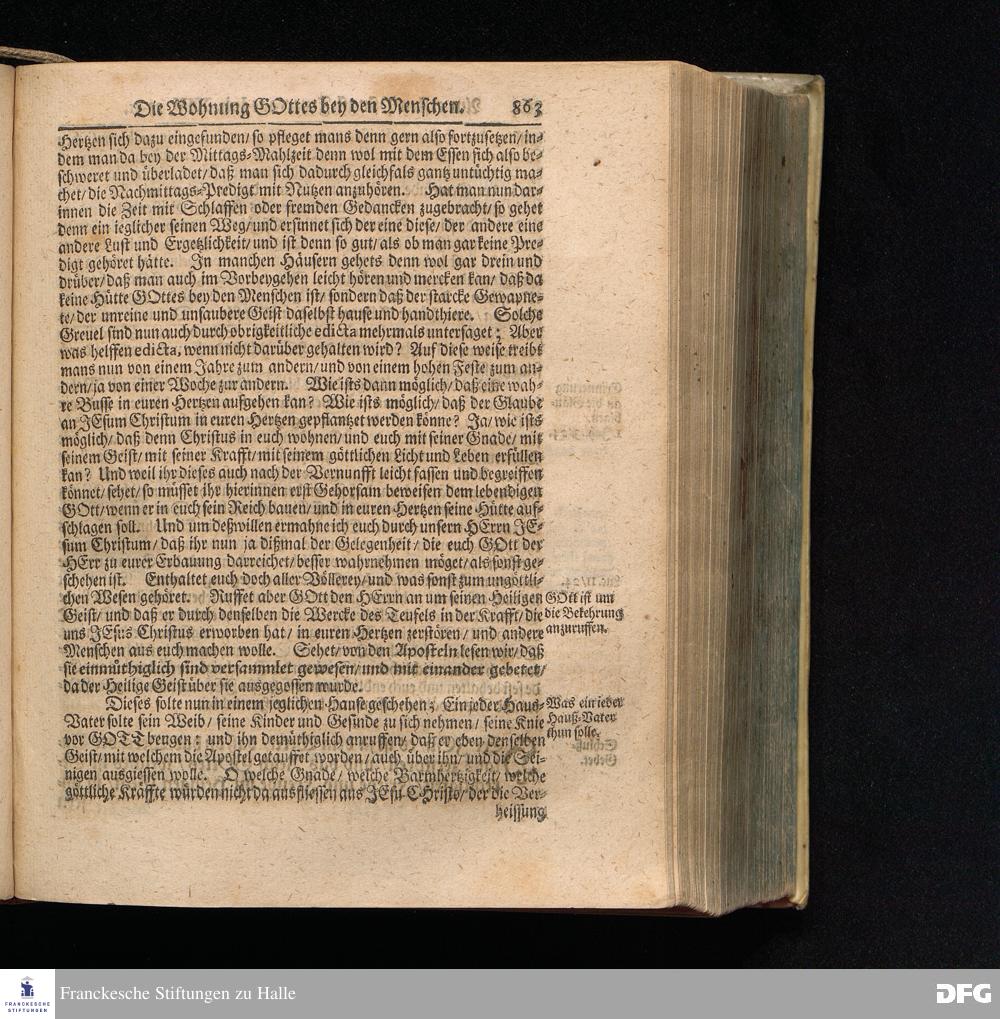 Die Wohnung GOttes bey den Menschen. 863
Hertzen sich dazu eingefunden/ so pfleget mans denn gern also fortzusetzen/ in-
dem man da bey der Mittags-Mahlzeit denn wol mit dem Essen sich also be-
schweret und überladet/ daß man sich dadurch gleichfals gantz untüchtig ma-
chet/ die Nachmittags-Predigt mit Nutzen anzuhören. Hat man nun dar-
innen die Zeit mit Schlaffen oder fremden Gedancken zugebracht/ so gehet
denn ein ieglicher seinen Weg/ und ersinnet sich der eine diese/ der andere eine
andere Lust und Ergetzlichkeit/ und ist denn so gut/ als ob man gar keine Pre-
digt gehöret hätte. In manchen Häusern gehets denn wol gar drein und
drüber/ daß man auch im Vorbeygehen leicht hören und mercken kan/ daß da
keine Hütte GOttes bey den Menschen ist/ sondern daß der starcke Gewapne-
te/ der unreine und unsaubere Geist daselbst hause und handthiere. Solche
Greuel sind nun auch durch obrigkeitliche edicta mehrmals untersaget; Aber
was helffen edicta, wenn nicht darüber gehalten wird? Auf diese weise treibt
mans nun von einem Jahre zum andern/ und von einem hohen Feste zum an-
dern/ ja von einer Woche zur andern. Wie ists dann möglich/ daß eine wah-
re Busse in euren Hertzen aufgehen kan? Wie ists möglich/ daß der Glaube
an JEsum Christum in euren Hertzen gepflantzet werden könne? Ja/ wie ists
möglich/ daß denn Christus in euch wohnen/ und euch mit seiner Gnade/ mit
seinem Geist/ mit seiner Krafft/ mit seinem göttlichen Licht und Leben erfüllen
kan? Und weil ihr dieses auch nach der Vernunfft leicht fassen und begreiffen
könnet/ sehet/ so müsset ihr hierinnen erst Gehorsam beweisen dem lebendigen
GOtt/ wenn er in euch sein Reich bauen/ und in euren Hertzen seine Hütte auf-
schlagen soll. Und um deßwillen ermahne ich euch durch unsern HErrn JE-
sum Christum/ daß ihr nun ja dißmal der Gelegenheit/ die euch GOtt der
HErr zu eurer Erbauung darreichet/ besser wahrnehmen möget/ als sonst ge-
schehen ist. Enthaltet euch doch aller Völlerey/ und was sonst zum ungöttli-
chen Wesen gehöret. Ruffet aber GOtt den HErrn an um seinen Heiligen
Geist/ und daß er durch denselben die Wercke des Teufels in der Krafft/ die
uns JEsus Christus erworben hat/ in euren Hertzen zerstören/ und andere
Menschen aus euch machen wolle. Sehet/ von den Aposteln lesen wir/ daß
sie einmüthiglich sind versammlet gewesen/ und mit einander gebetet/
da der Heilige Geist über sie ausgegossen wurde.
GOtt ist um
die Bekehrung
anzuruffen.
Dieses solte nun in einem jeglichen Hause geschehen; Ein jeder Haus-
Vater solte sein Weib/ seine Kinder und Gesinde zu sich nehmen/ seine Knie
vor GOTT beugen: und ihn demüthiglich anruffen/ daß er eben denselben
Geist/ mit welchem die Apostel getauffet worden/ auch über ihn/ und die Sei-
nigen ausgiessen wolle. O welche Gnade/ welche Barmhertzigkeit/ welche
göttliche Kräffte würden nicht da ausfliessen aus JEsu CHristo/ der die Ver-
heissung
Was ein ieder
Hauß-Vater
thun solle.
FRANCKESCHE
STIFTUNGEN
Franckesche Stiftungen zu Halle
DFG